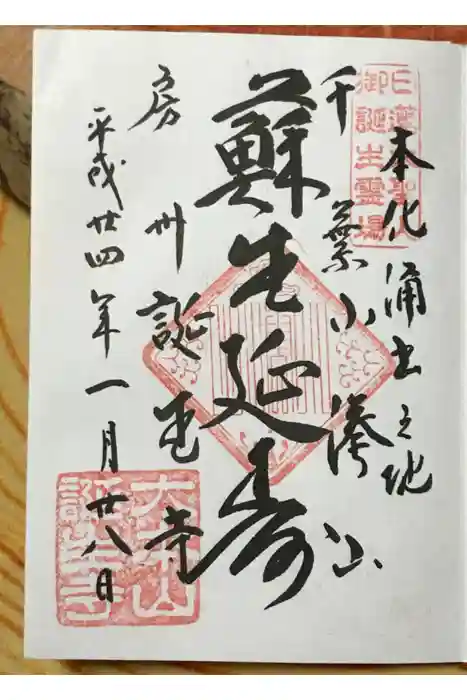 日蓮聖人
御誕生霊場
本化涌出之地
千葉小湊山
蘇生延寿
房州誕生寺
平成廿四年一月廿八日
大本山
誕生寺